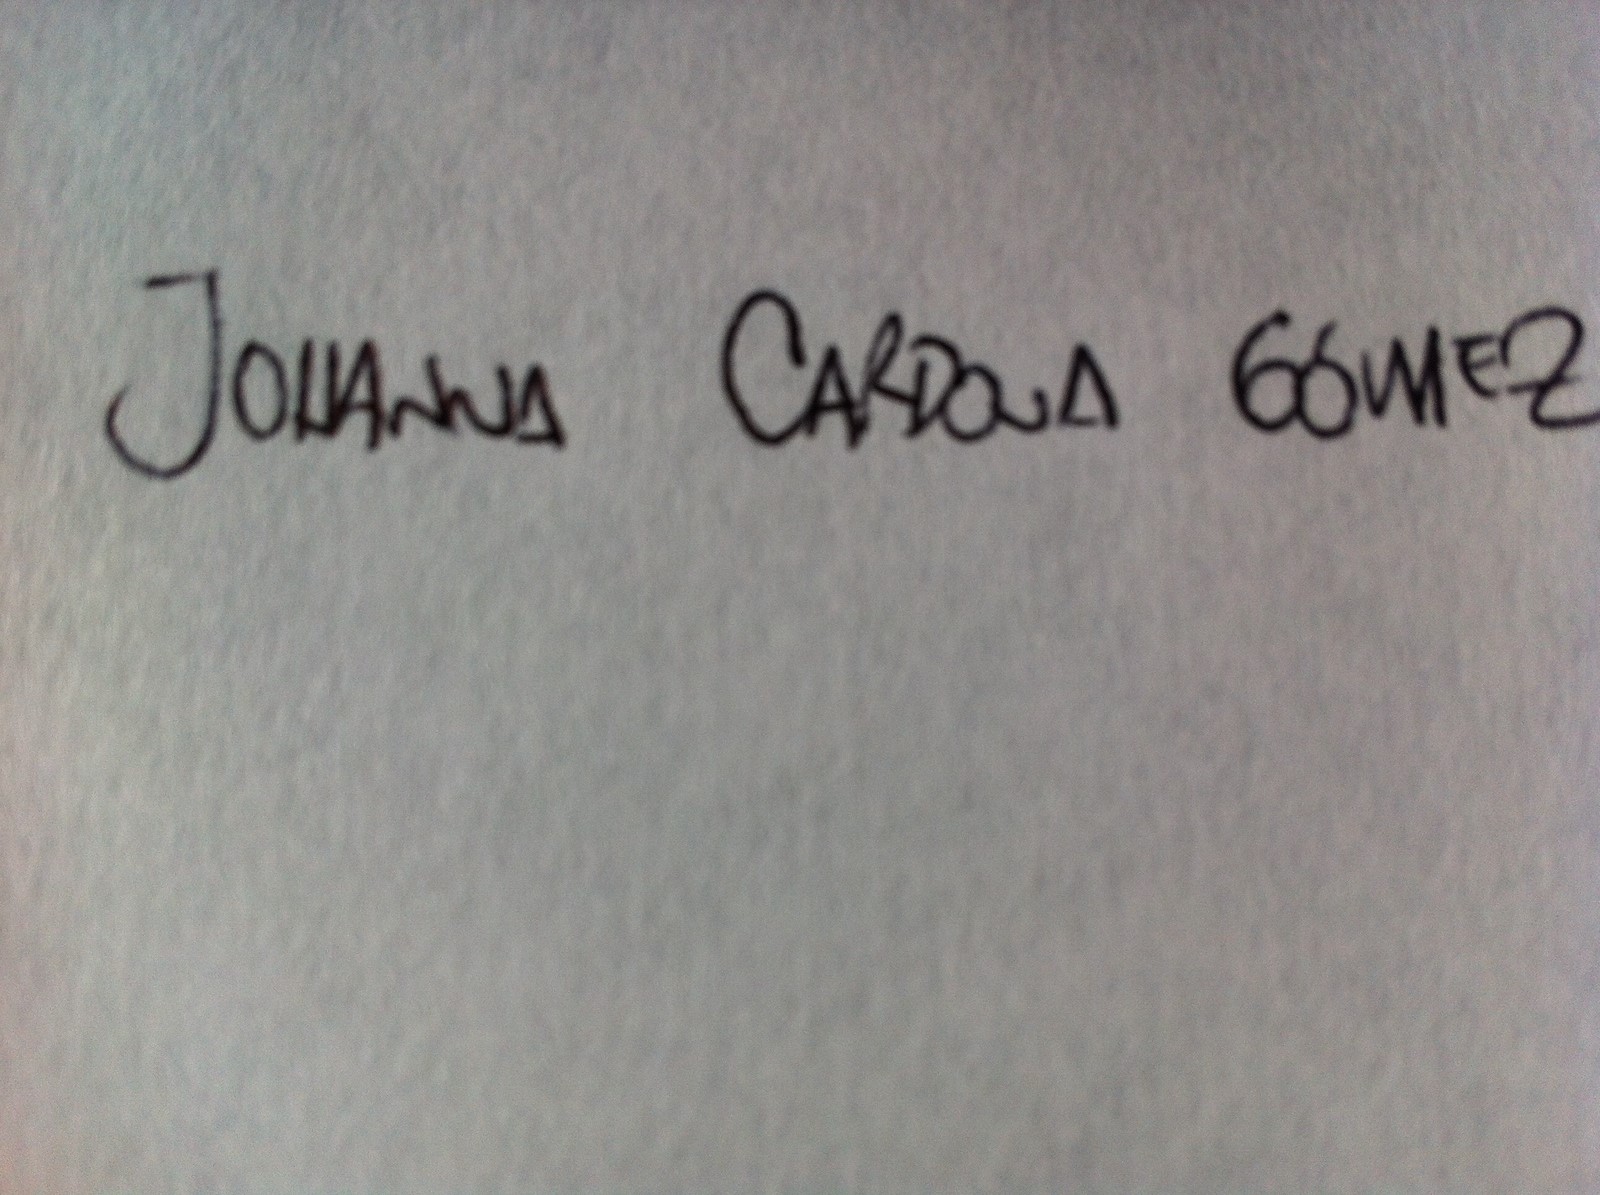 Johanna Cardona Gómez